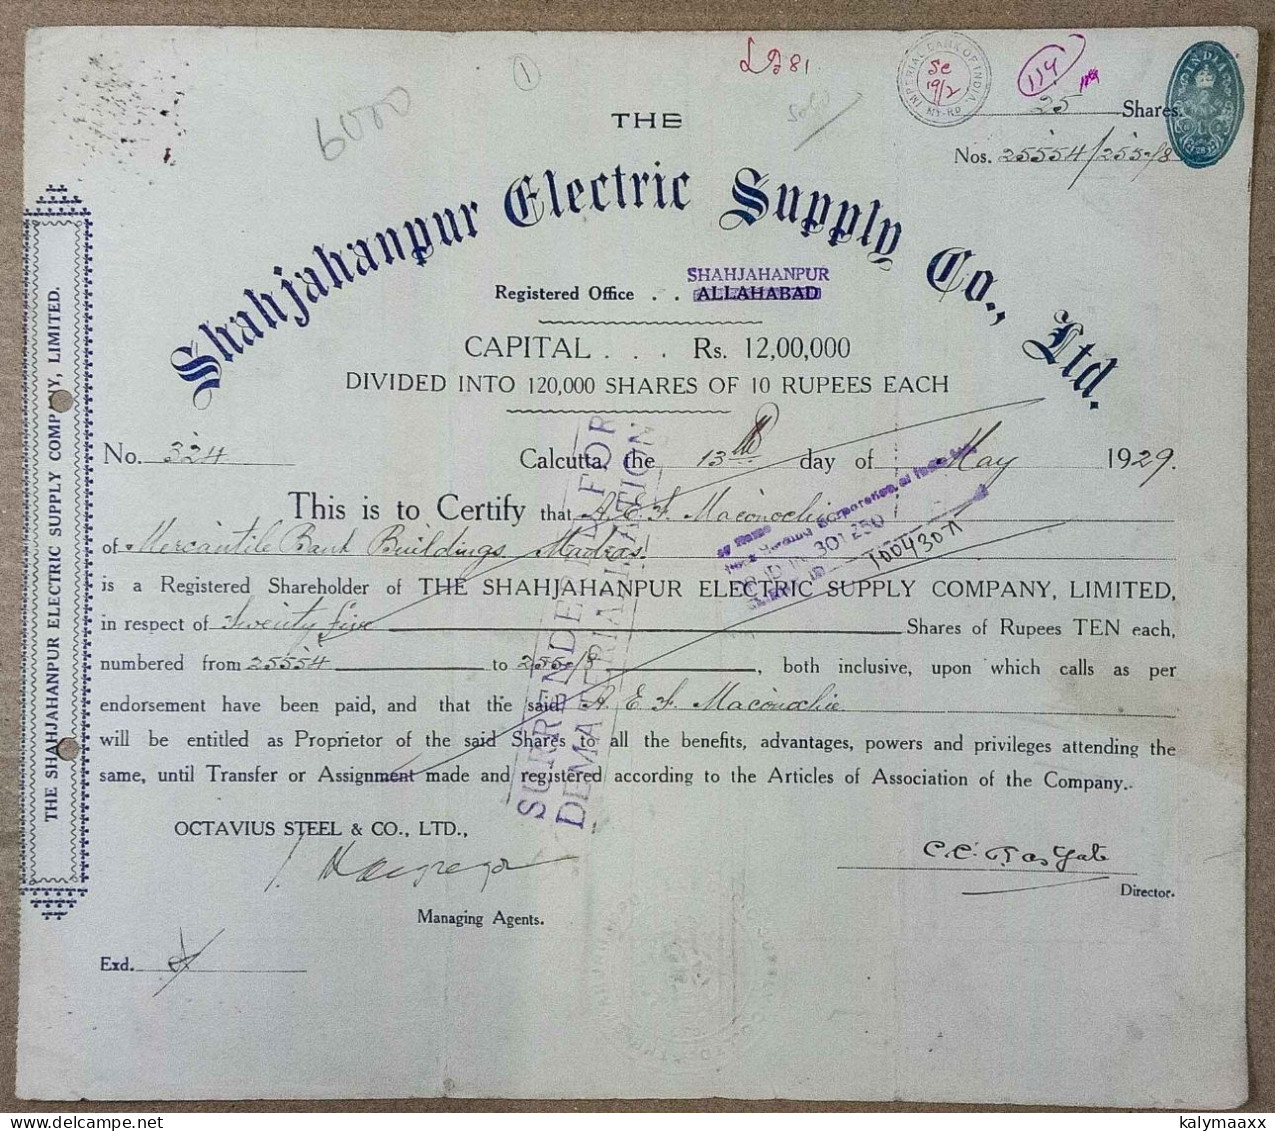 1
6000
81
IMPERIAL BANK OF INDIA
19/2
114
INDIA
25 Shares.
Nos. 25554/255-/8
THE
Shahjahanpur Electric Supply Co., Ltd.
SHAHJAHANPUR
Registered Office . . ALLAHABAD
CAPITAL . . . Rs. 12,00,000
DIVIDED INTO 120,000 SHARES OF 10 RUPEES EACH
No. 324 Calcutta, the 13th day of May 1929.
This is to Certify that A. E. F. Maconochie
of Mercantile Bank Buildings, Madras.
is a Registered Shareholder of THE SHAHJAHANPUR ELECTRIC SUPPLY COMPANY, LIMITED,
in respect of Twenty five Shares of Rupees TEN each,
numbered from 25554 to 255-/8, both inclusive, upon which calls as per
endorsement have been paid, and that the said A. E. F. Maconochie
will be entitled as Proprietor of the said Shares to all the benefits, advantages, powers and privileges attending the
same, until Transfer or Assignment made and registered according to the Articles of Association of the Company.
SURRENDERED FOR
DEMATERIALISATION
301250
10043071
OCTAVIUS STEEL & CO., LTD.,
Managing Agents.
Director.
Exd.
THE SHAHJAHANPUR ELECTRIC SUPPLY COMPANY, LIMITED.
kalymaaxx